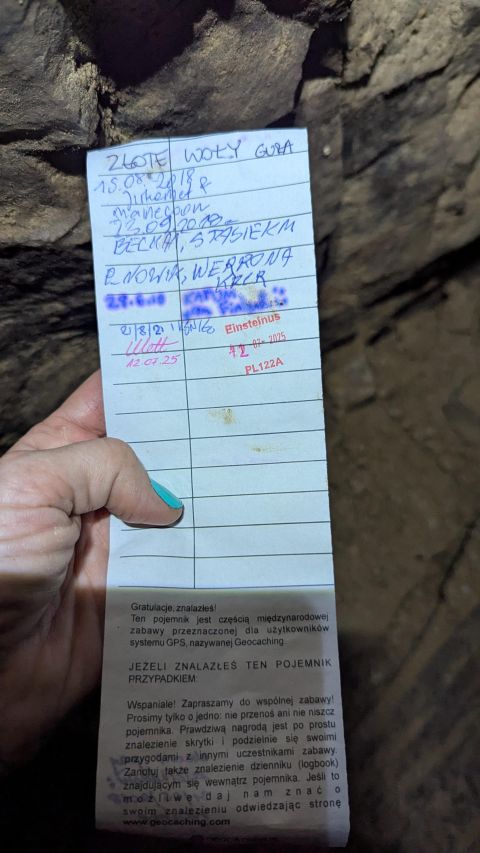 ZŁOTE WOŁY GURA
15.08.2018
&
BECKY, STASIEKM
NOWIK, WERRONA
2/8/21
Einsteinus
12 07- 2025
12.07.25
PL122A
Gratulacje, znalazłeś!
Ten pojemnik jest częścią międzynarodowej
zabawy przeznaczonej dla użytkowników
systemu GPS, nazywanej Geocaching.
JEŻELI ZNALAZŁEŚ TEN POJEMNIK
PRZYPADKIEM:
Wspaniale! Zapraszamy do wspólnej zabawy!
Prosimy tylko o jedno: nie przenoś ani nie niszcz
pojemnika. Prawdziwą nagrodą jest po prostu
znalezienie skrytki i podzielenie się swoimi
przygodami z innymi uczestnikami zabawy.
Zanotuj także znalezienie dzienniku (logbook)
znajdującym się wewnątrz pojemnika. Jeśli to
możliwe daj nam znać o
swoim znalezieniu odwiedzając stronę
www.geocaching.com